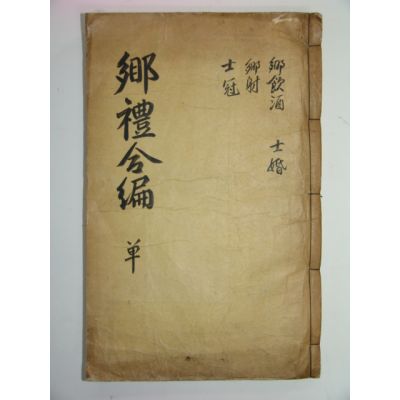 鄕飮酒 士婚
鄕射
士冠
鄕禮合編 单